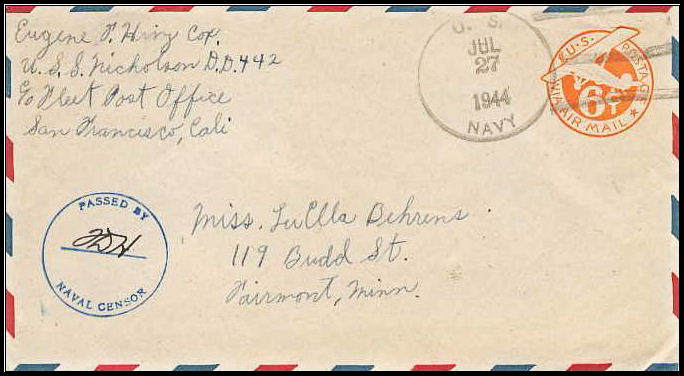 Eugene P. Hiny Cox.
U.S.S. Nicholson D.D.442
c/o Fleet Post Office
San Francisco, Cali
U. S.
JUL
27
1944
NAVY
U.S. POSTAGE
VIA AIR MAIL
6¢
PASSED BY
NAVAL CENSOR
Miss. LuElla Behrens
119 Budd St.
Fairmont, Minn.